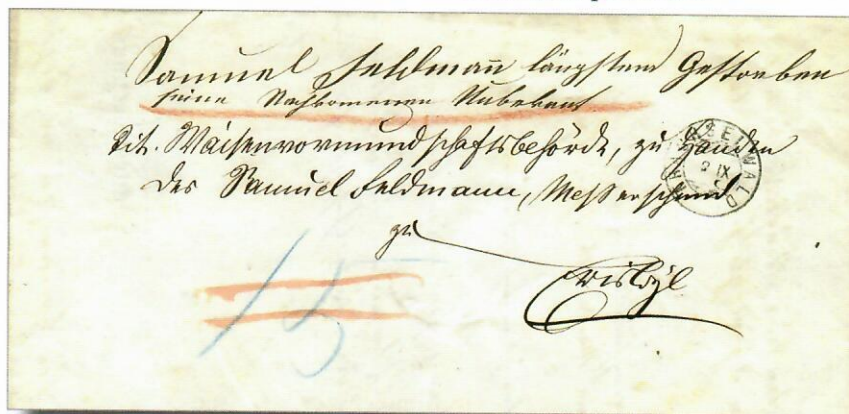 Samuel Feldman̄ längstens Gestorben
seine Nachkomenen Unbekant
Tit. Waisenvormundschaftsbehörde, zu Handen
des Samuel Feldmann, Messerschmid
zu
Eriswyl
15
IX